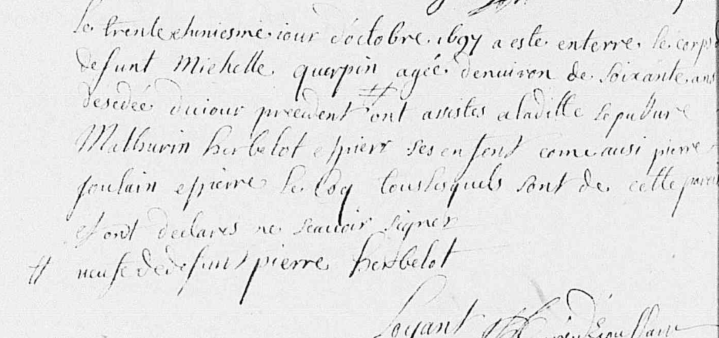 le trente & huniesme iour d'octobre 1697 a este enterre le corps
defunt Michelle querpin agée denuiron de soixante ans
desedée duiour precedent # ont assistes a laditte sepulture
Mathurin herbelot et pierr ses enfent come ausi pierre
poulain et pierre le Coq touslesquels sont de cette paroi
et ont declares ne scauoir signer
# neufe de defunt pierre herbelot
Loyant